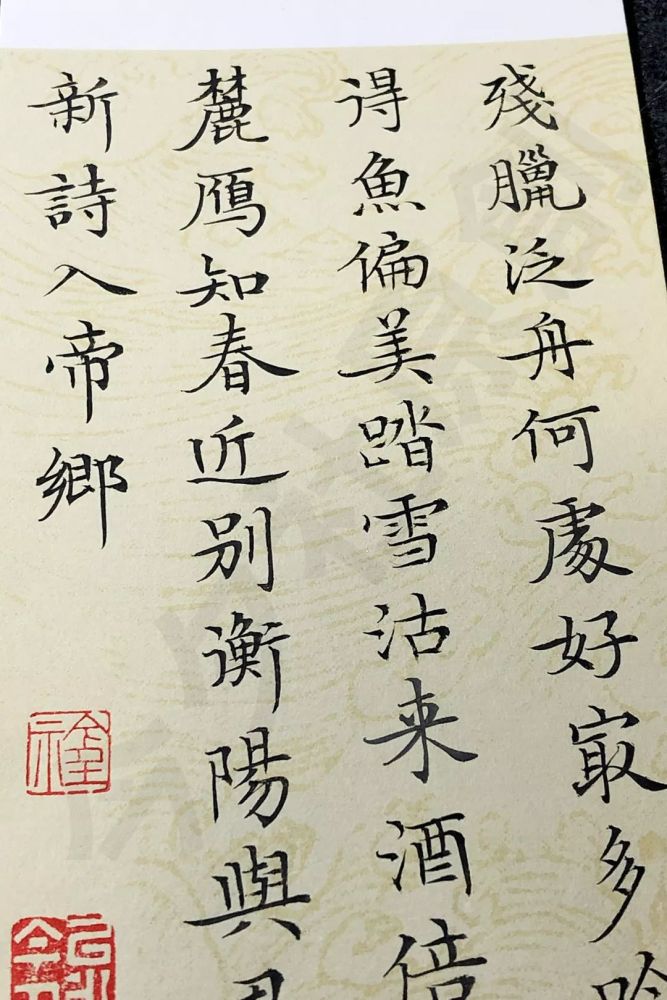 殘臘泛舟何處好㝡多吟
得魚偏美踏雪沽来酒倍
麓鴈知春近别衡陽與君
新詩入帝鄉